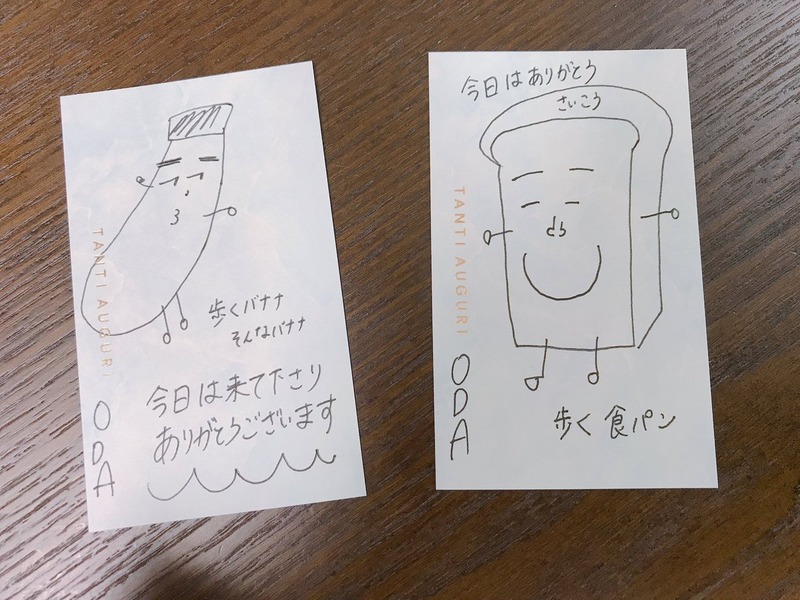 TANTI AUGURI
歩くバナナ
そんなバナナ
今日は来て下さり
ありがとうございます
ODA
今日はありがとう
さいこう
TANTI AUGURI
ODA
歩く食パン